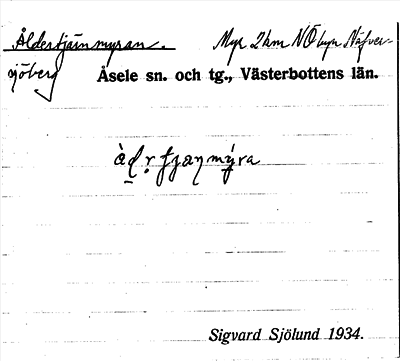 Åldertjärnmyran. Myr 2km NÖ byn Näfver-
sjöberg Åsele sn. och tg., Västerbottens län.
Sigvard Sjölund 1934.